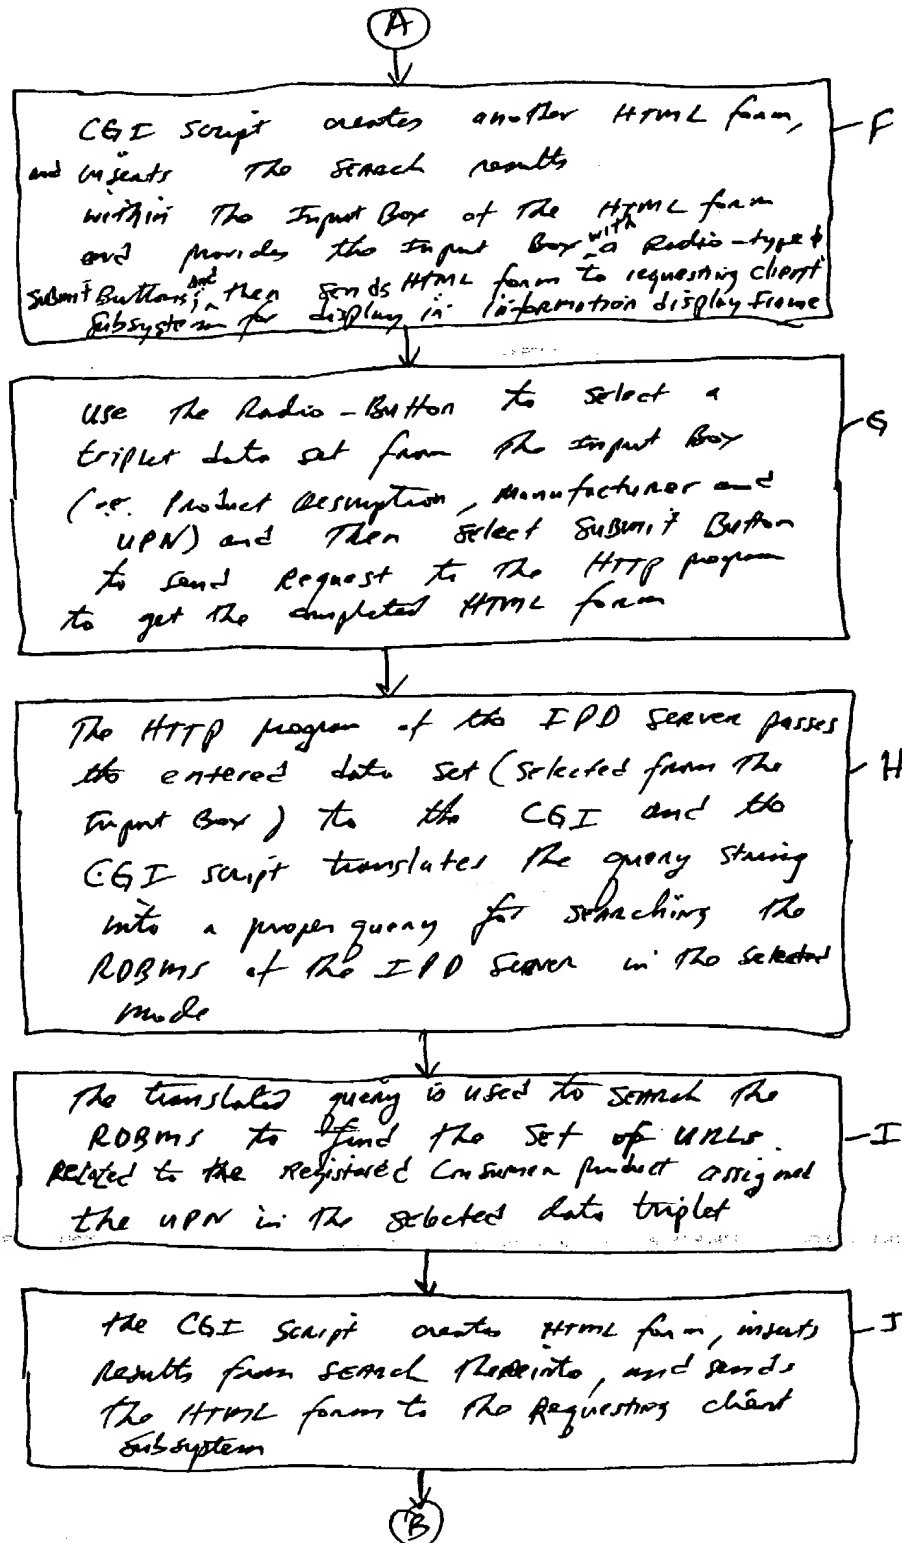 A
CGI Script creates another HTML form,
and inserts The SEARCH results
within The Input Box of The HTML form
and provides the Input Box with a Radio-type &
Submit Buttons; and then sends HTML form to requesting client
Subsystem for display in information display frame
F
use The Radio-Button to select a
triplet data set from The Input Box
(i.e. Product Description, Manufacturer and
UPN) and Then select Submit Button
to send Request to The HTTP program
to get the completed HTML form
G
The HTTP program of the IPD Server passes
the entered data set (selected from The
Input Box) to the CGI and the
CGI script translates The query string
into a proper query for searching The
RDBMS of The IPD Server in The selected
mode
H
The translated query is used to SEARCH The
RDBMS to find the Set of URLs
Related to the Registered Consumer product assigned
the UPN in The selected data triplet
I
the CGI Script creates HTML form, inserts
Results from SEARCH Thereinto, and sends
The HTML form to The Requesting client
Subsystem
J
B